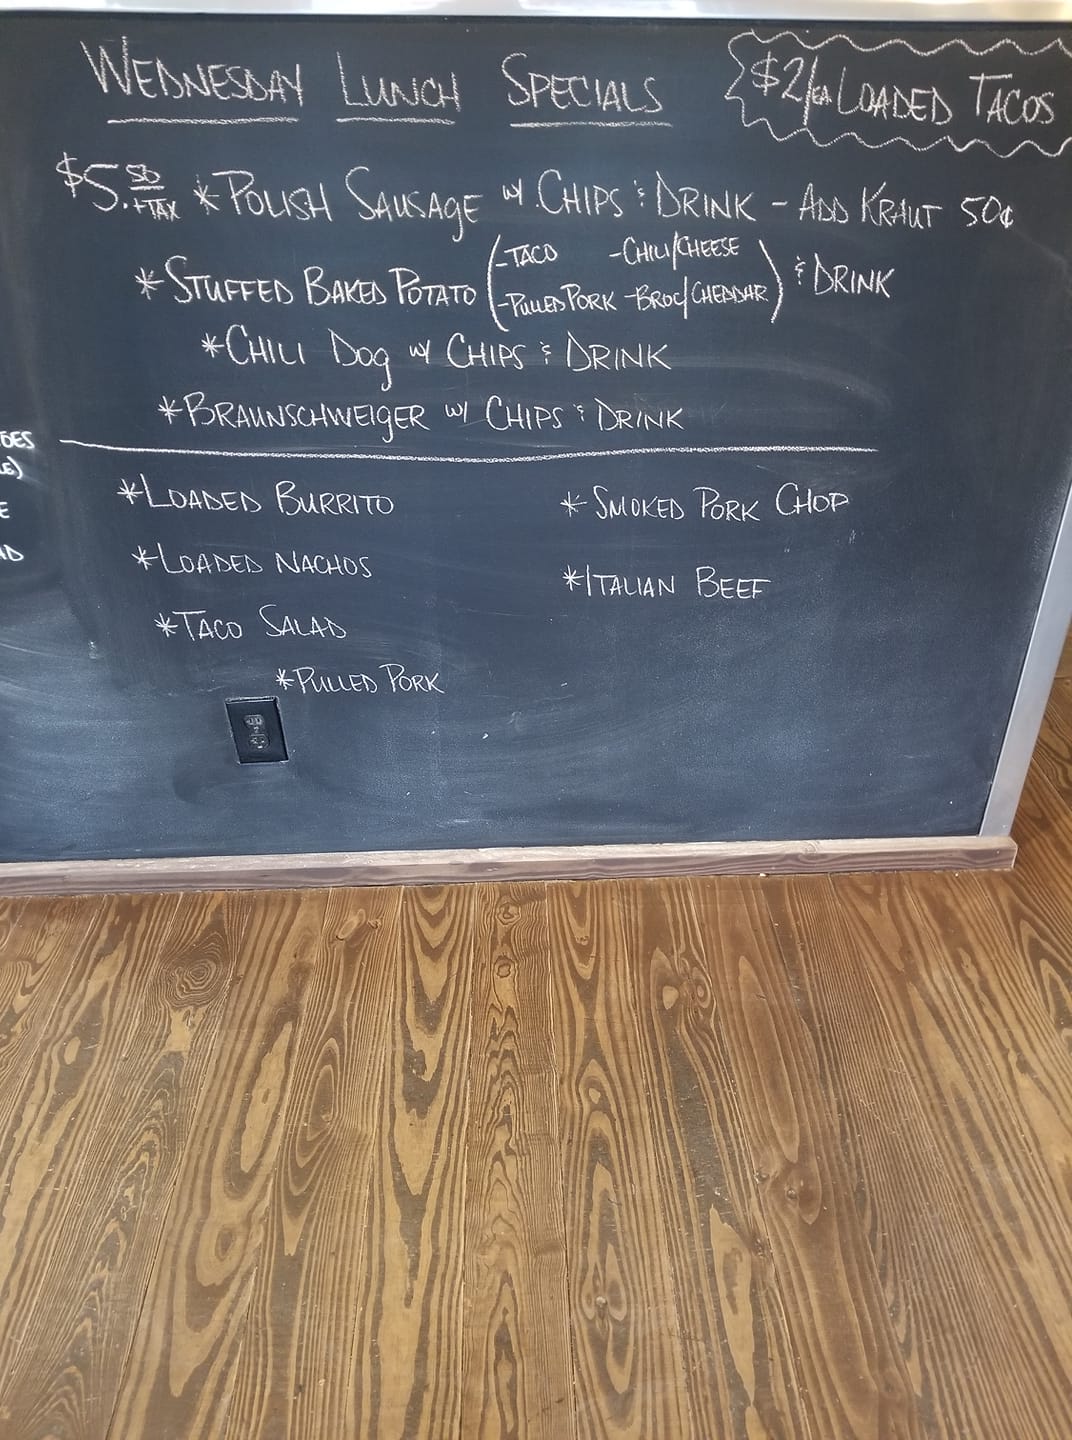 WEDNESDAY LUNCH SPECIALS
$2/EA LOADED TACOS
$5.50 +TAX * POLISH SAUSAGE W/ CHIPS & DRINK - ADD KRAUT 50¢
* STUFFED BAKED POTATO (-TACO -CHILI/CHEESE
-PULLED PORK -BROC/CHEDDAR) & DRINK
* CHILI DOG W/ CHIPS & DRINK
* BRAUNSCHWEIGER W/ CHIPS & DRINK
* LOADED BURRITO
* LOADED NACHOS
* TACO SALAD
* PULLED PORK
* SMOKED PORK CHOP
* ITALIAN BEEF